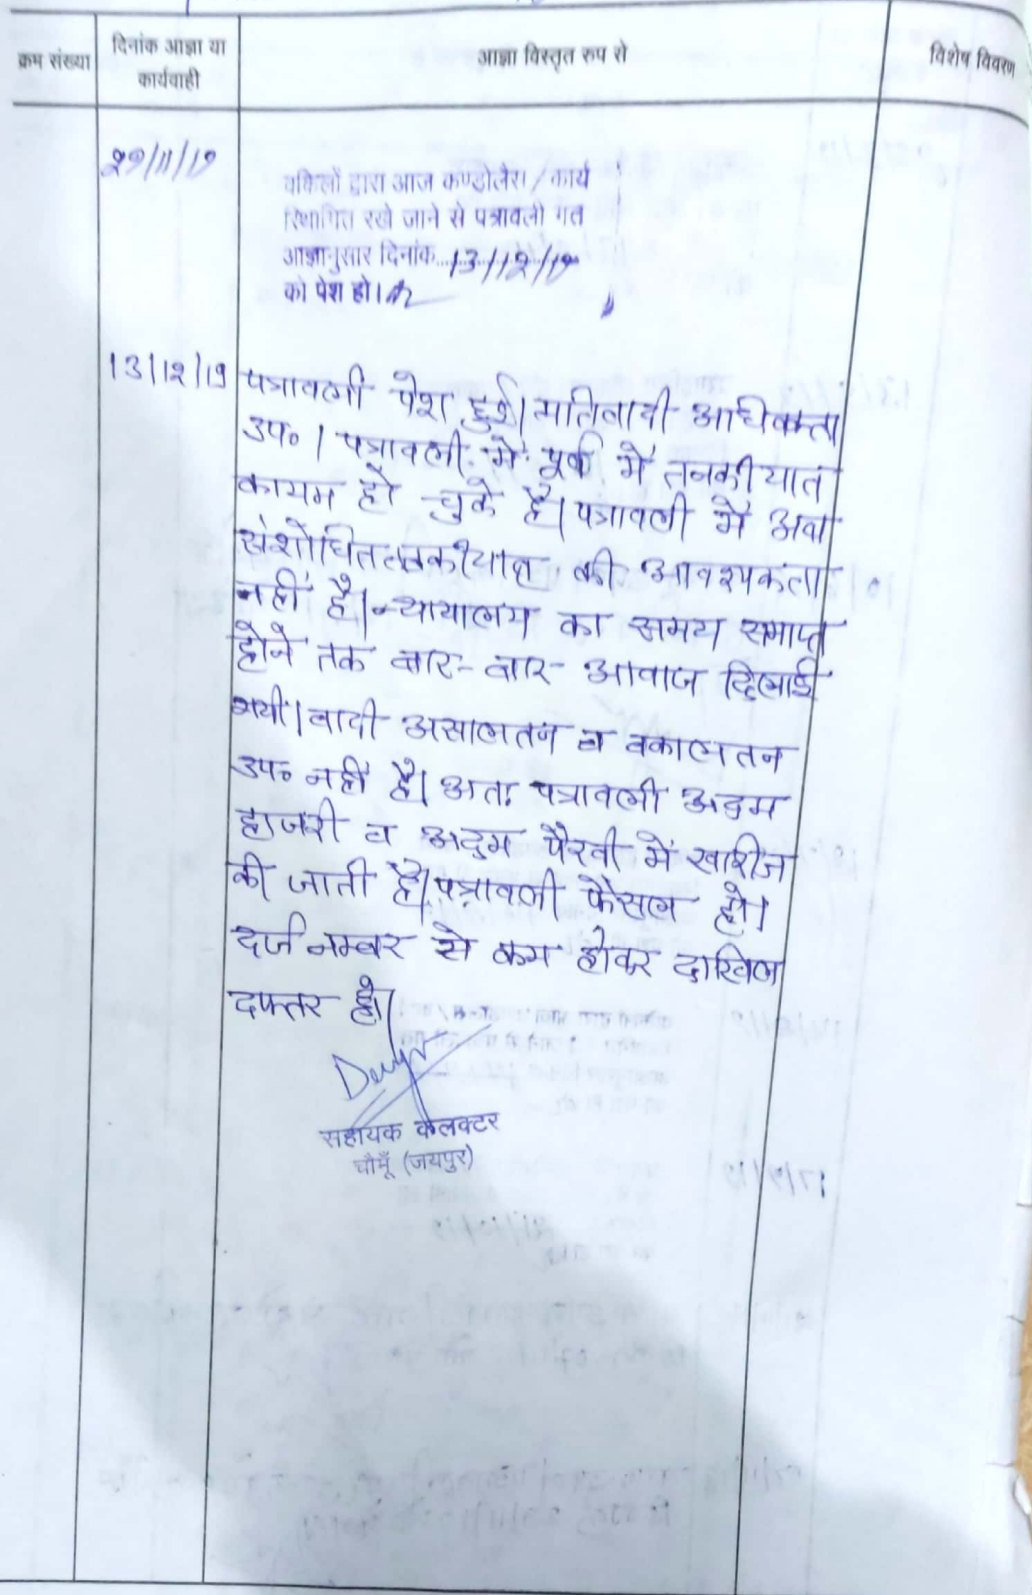 क्रम संख्या
दिनांक आज्ञा या
कार्यवाही
आज्ञा विस्तृत रुप से
विशेष विवरण
29/11/19
वकिलों द्वारा आज कण्डोलेंस / कार्य
स्थिगित रखे जाने से पत्रावली गत
आज्ञानुसार दिनांक...13/12/19
को पेश हो।
13/12/19
पत्रावली पेश हुई। प्रतिवादी अधिवक्ता
उप० । पत्रावली में पूर्व में तनकीयात
कायम हो चुके है। पत्रावली में अब
संशोधित तनकीयात की आवश्यकता
नहीं है। न्यायालय का समय समाप्त
होने तक बार-बार आवाज दिलाई
गयी। वादी असालतन व वकालतन
उप० नहीं है। अतः पत्रावली अदम
हाजरी व अदम पैरवी में खारीज
की जाती है। पत्रावली फैसल हो।
दर्ज नम्बर से कम होकर दाखिल
दफ्तर हो।
सहायक कलक्टर
चौमूँ (जयपुर)